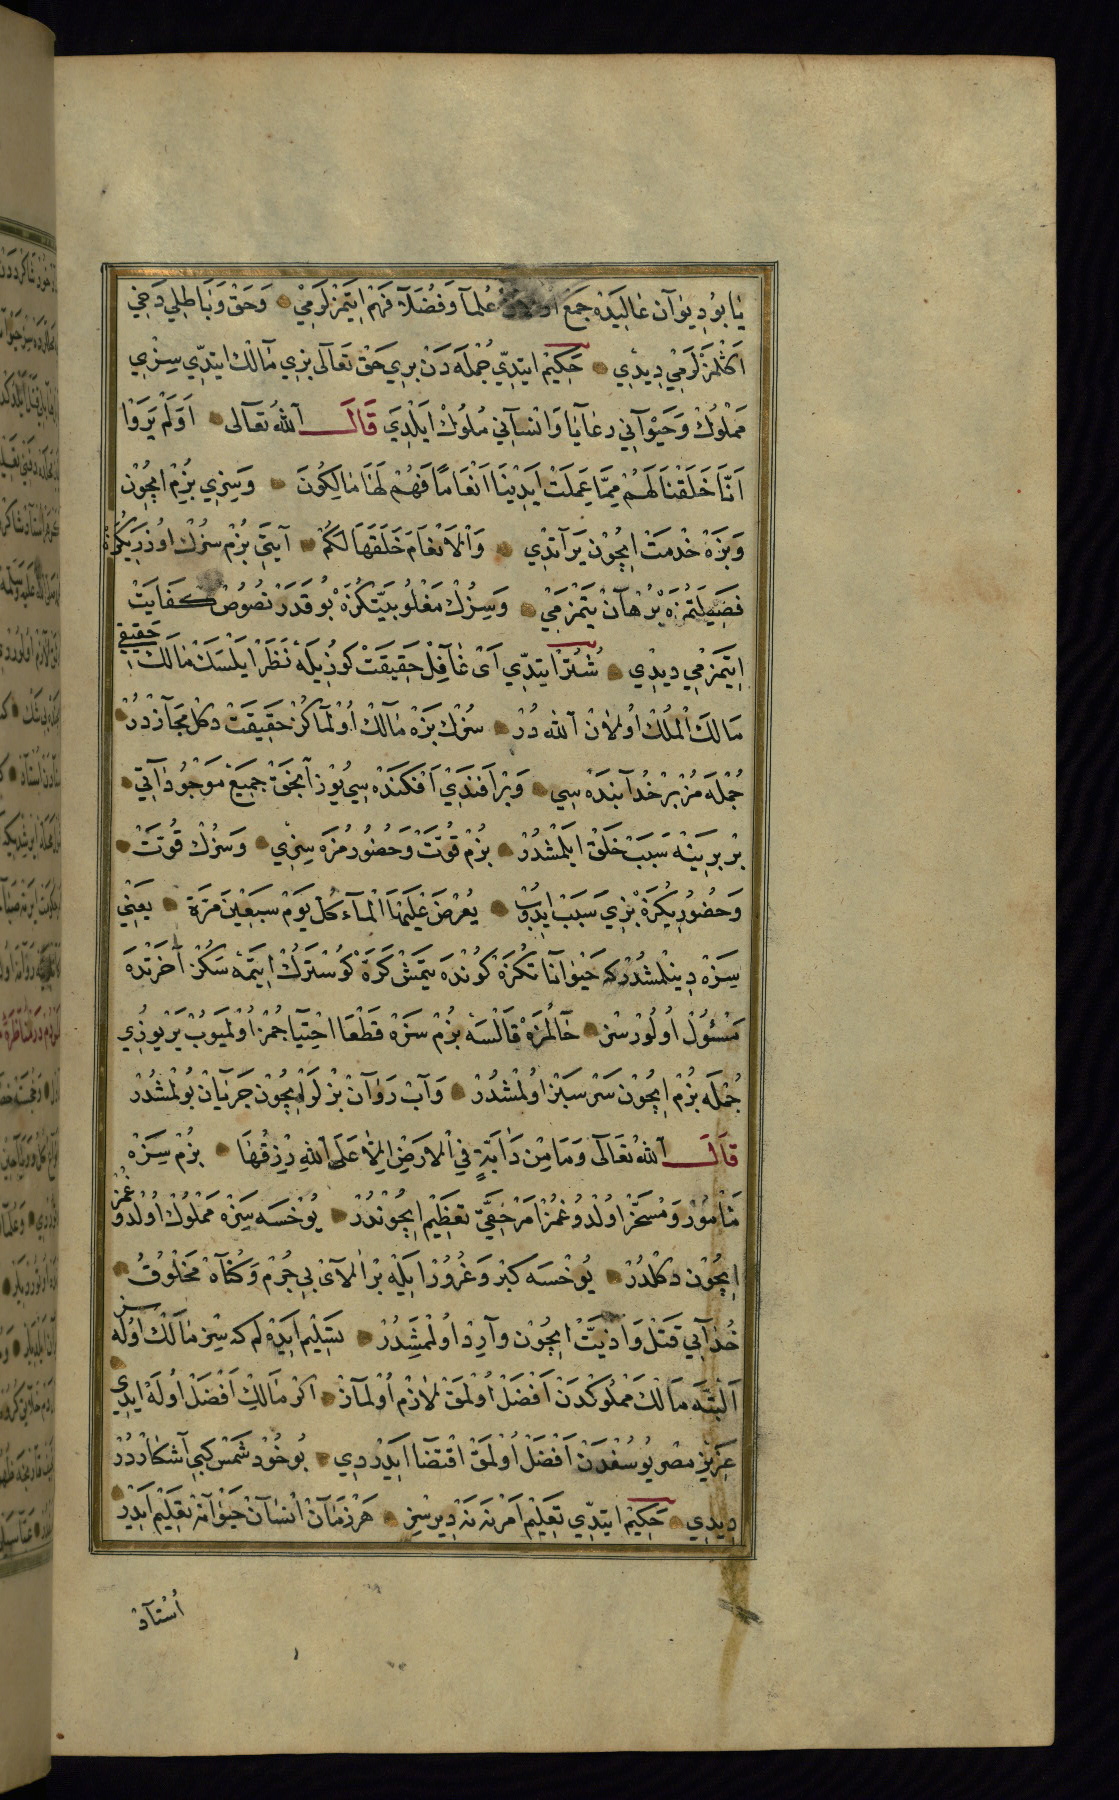 يا بو ديوان عاليده جمع علما و فضلا فهم ايتمزلرمي وحق و باطلي دخي
اكلمزلرمي ديدي حكيم ايتدي جمله دن بري حق تعالى بزي مالك ايتدي سزي
مملوك و حيواني رعايا و انساني ملوك ايلدي قال الله تعالى اولم يروا
انا خلقنا لهم مما عملت ايدينا انعاما فهم لها مالكون و سزي بزم ايچون
و بزه خدمت ايچون يراتدي والانعام خلقها لكم آيتي بزم سزك اوزريكزه
فضيلتمزه برهان يتمزمي و سزك مغلوبيتكزه بو قدر نصوص كفايت
ايتمزمي ديدي شتر ايتدي اى غافل حقيقت كوزيله نظر ايلسك مالك حقيقي
مالك الملك اولان الله در سزك بزه مالك اولماكز حقيقت دكل مجازدر
جمله مز بر خدا بنده سي و بر افندي افكنده سي يوز انجق جميع موجوداتي
بر برينه سبب خلق ايلمشدر بزم قوت و حضورمزه سزي و سزك قوت
و حضوريكزه بزي سبب ايدوب يعرض عليها الماء كل يوم سبعين مرة يعني
سزه دينلمشدركه حيواناتكزه كونده يتمش كره كوسترك ايتمه سكز آخرتده
مسئول اولورسز حالمزه قالسه بزم سزه قطعا احتياجمز اولميوب ير يوزي
جمله بزم ايچون سر سبز اولمشدر و آب روان بزلر ايچون جريان بولمشدر
قال الله تعالى وما من دابة في الارض الا على الله رزقها بزم سزه
مأمور و مسخر اولدوغمز امر حقي تعظيم ايچوندر يوخسه سزه مملوك اولدوغمز
ايچون دكلدر يوخسه كبر و غرور ايله بر الاى بي جرم و كناه مخلوق
خدايي قتل و اذيت ايچون وارد اولمشدر تسليم ايده لم كه سز مالك اوله سز
البته مالك مملوكدن افضل اولمق لازم اولماز اكر مالك افضل اوله ايدي
عزيز مصر يوسفدن افضل اولمق اقتضا ايدردي بو خود شمس كبي آشكاردر
ديدي حكيم ايتدي تعليم امرنه نه ديرسز هر زمان انسان حيوانه تعليم ايدر
استاد